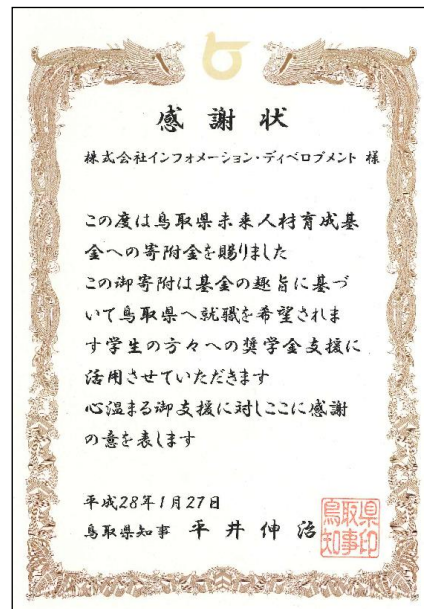 感謝状
株式会社インフォメーション・ディベロプメント 様
この度は鳥取県未来人材育成基
金への寄附金を賜りました
この御寄附は基金の趣旨に基づ
いて鳥取県へ就職を希望されま
す学生の方々への奨学金支援に
活用させていただきます
心温まる御支援に対しここに感謝
の意を表します
平成28年1月27日
鳥取県知事 平井伸治
鳥取県
知事印